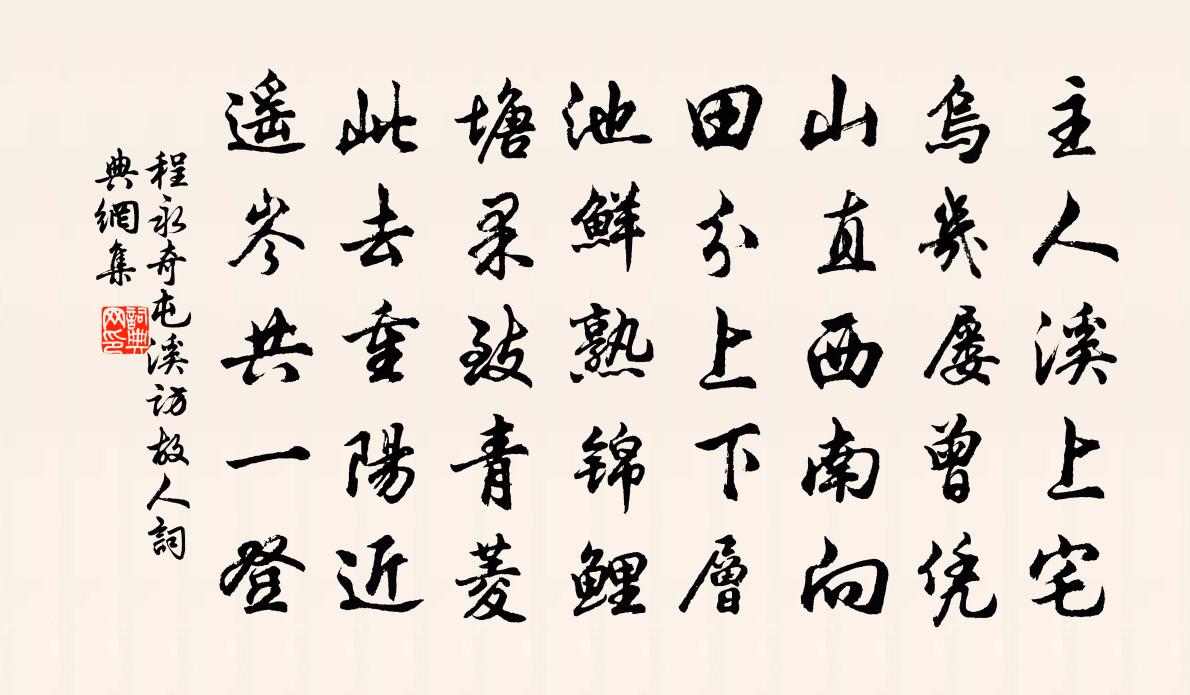 主人溪上宅
烏幾屢曾凭
山直西南向
田分上下層
池鮮熟锦鯉
塘果致青菱
此去重陽近
遥岑共一登
程永奇屯溪访故人詞
典網集
詞典网印